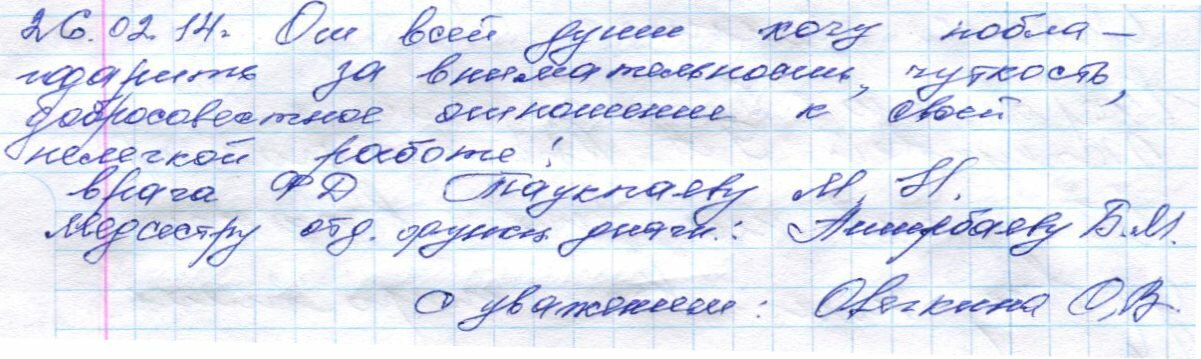 26.02.14г. От всей души хочу побла-
годарить за внимательность, чуткость,
добросовестное отношение к своей
нелегкой работе:
врача ФД Таукпаеву М. Н.
Медсестру отд. функц. диагн.: Аширбаеву Б.М.
С уважением: Овечкина О.В.